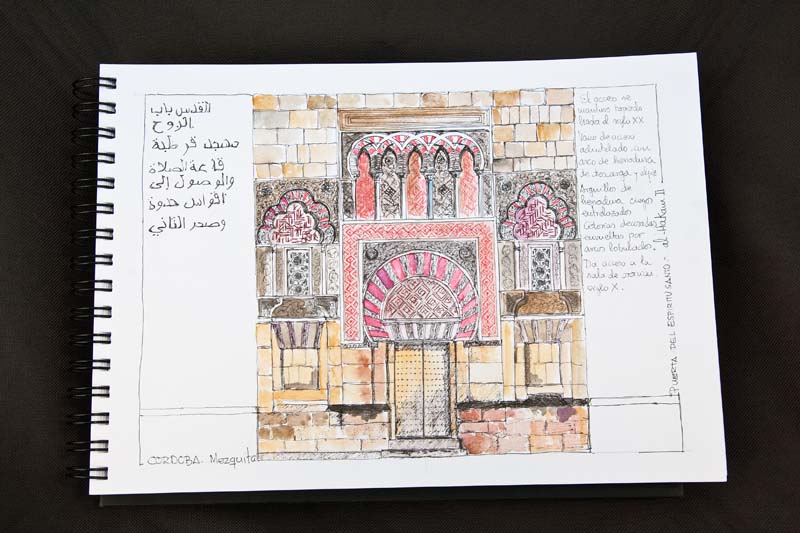 القدس باب
الروح
مسجد قرطبة
قاعة الصلاة
والوصول إلى
أقواس حدوة
وصدر الثاني
El acceso se
mantuvo
hasta el siglo XX
Vano de acceso
adintelado, con
arco de herradura
de descarga y alfiz
Arquillos de
herradura ciegos
entrelazados
Celosías decoradas
envueltas por
arcos lobulados.
Da acceso a la
sala de oración
siglo X.
PUERTA DEL ESPIRITU SANTO - al-Hakam II
CORDOBA. Mezquita